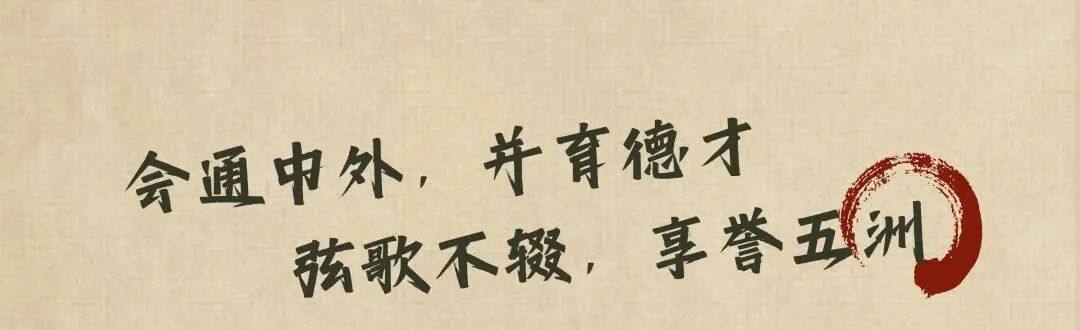 会通中外,并育德才
弦歌不辍,享誉五洲